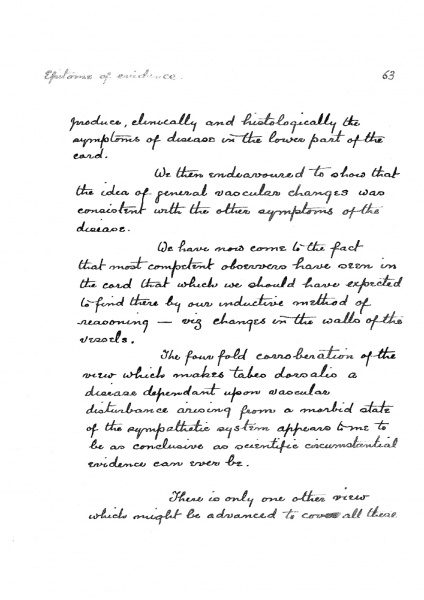 Epitome of evidence. 63
produce, clinically and histologically the
symptoms of disease in the lower part of the
cord.
We then endeavoured to show that
the idea of general vascular changes was
consistent with the other symptoms of the
disease.
We have now come to the fact
that most competent observers have seen in
the cord that which we should have expected
to find there by our inductive method of
reasoning — viz changes in the walls of the
vessels.
The four fold corroberation of the
view which makes tabes dorsalis a
disease dependant upon vascular
disturbance arising from a morbid state
of the sympathetic system appears to me to
be as conclusive as scientific circumstantial
evidence can ever be.
There is only one other view
which might be advanced to cover all these